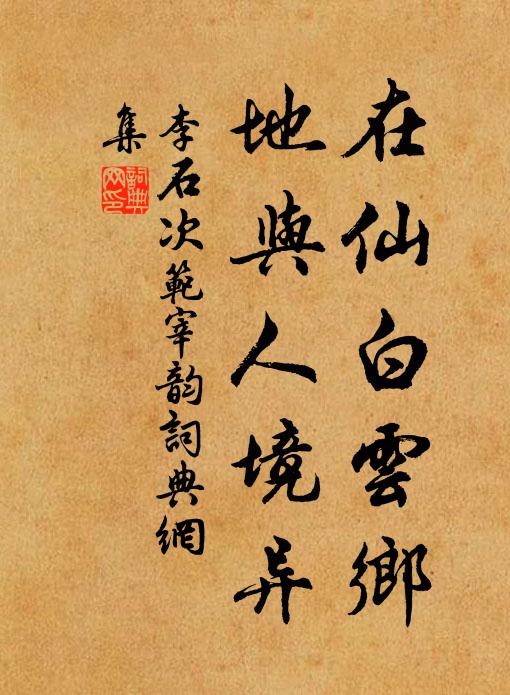 在仙白雲鄉
地與人境异
李石次範宰韵詞典網
集
詞典網印